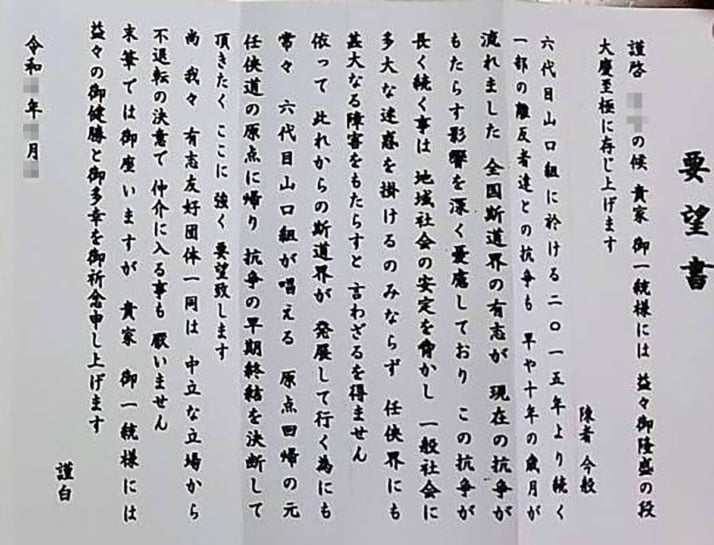 要望書
謹啓 の候 貴家 御一統様には 益々御隆盛の段
大慶至極に存じ上げます
陳者 今般
六代目山口組に於ける二〇一五年より続く
一部の離反者達との抗争も 早や十年の歳月が
流れました 全国断道界の有志が 現在の抗争が
もたらす影響を深く憂慮しており この抗争が
長く続く事は 地域社会の安定を脅かし 一般社会に
多大な迷惑を掛けるのみならず 任侠界にも
甚大なる障害をもたらすと 言わざるを得ません
依って 此れからの断道界が 発展して行く為にも
常々 六代目山口組が唱える 原点回帰の元
任侠道の原点に帰り 抗争の早期終結を決断して
頂きたく ここに強く 要望致します
尚 我々 有志友好団体一同は 中立な立場から
不退転の決意で 仲介に入る事も 厭いません
末筆では御座いますが 貴家 御一統様には
益々の御健勝と御多幸を御祈念申し上げます
謹白
令和 年 月